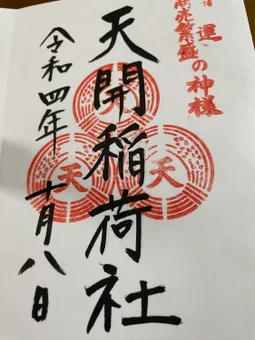 運
商売繁盛の神様
天開稲荷社
天
天
令和四年 十月八日